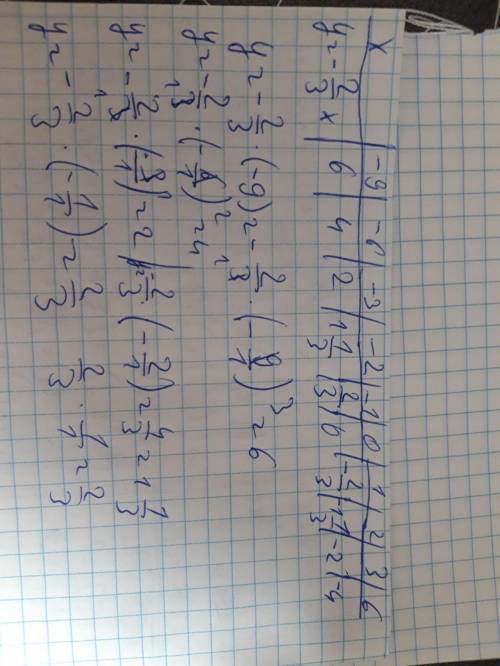 x | -9 | -6 | -3 | -2 | -1 | 0 | 1 | 2 | 3 | 6
y = -2/3 x | 6 | 4 | 2 | 1 1/3 | 2/3 | 0 | -2/3 | -1 1/3 | -2 | -4
y = -2/3 · (-9) = -2/3 · (-9/1)^3 = 6
y = -2/3 · (-6/1)^2 = 4
y = -2/3 · (-3/1)^1 = 2 | -2/3 (-2/1) = 4/3 = 1 1/3
y = -2/3 · (-1/1) = 2/3 2/3 · 1/1 = 2/3